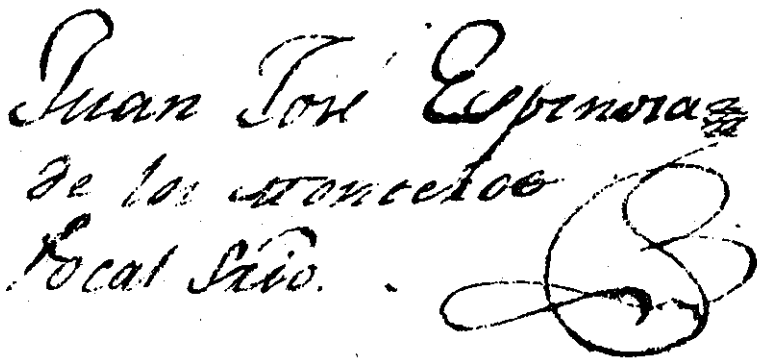 Juan José Espinosa
de los Monteros
Vocal Srio.